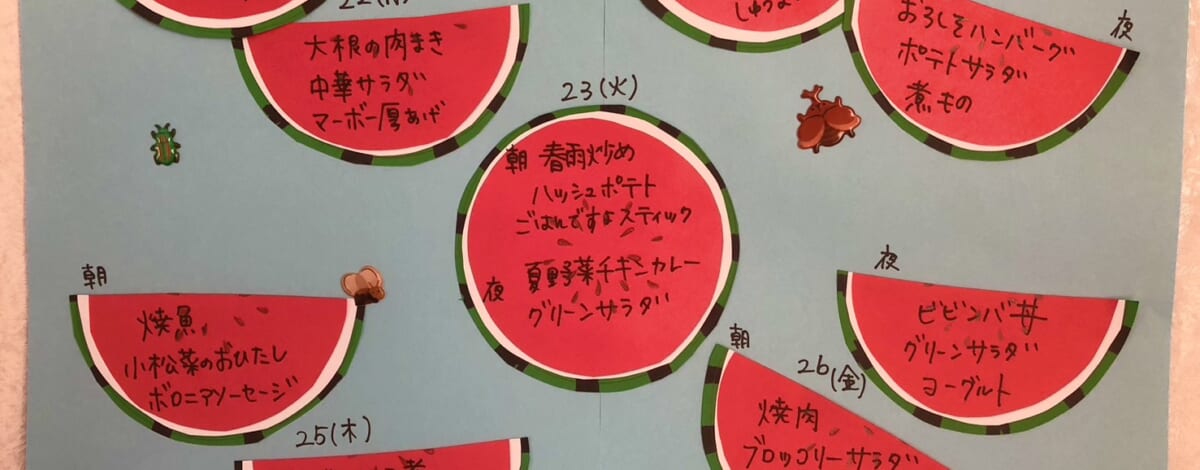 22(月)
大根の肉まき
中華サラダ
マーボー厚あげ
夜
おろしそハンバーグ
ポテトサラダ
煮もの
23(火)
朝 春雨炒め
ハッシュポテト
ごはんですよスティック
夜 夏野菜チキンカレー
グリーンサラダ
朝
焼魚
小松菜のおひたし
ボロニアソーセージ
25(木)
夜
ビビンバ丼
グリーンサラダ
ヨーグルト
朝
26(金)
焼肉
ブロッコリーサラダ